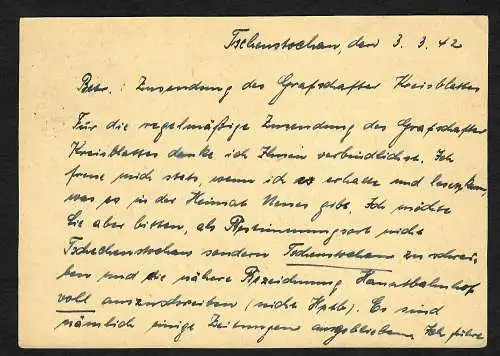 Tschenstochau, den 3. 3. 42
Betr.: Zusendung des Grafschafter Kreisblattes
Für die regelmäßige Zusendung des Grafschafter
Kreisblattes danke ich Ihnen verbindlichst. Ich
freue mich stets, wenn ich es erhalte und lesen kann,
was es in der Heimat Neues gibt. Ich möchte
Sie aber bitten, als Bestimmungsort nicht
Tschechenstochau sondern Tschenstochau zu schrei-
ben und die nähere Bezeichnung Hauptbahnhof
voll auszuschreiben (nicht Hptb). Es sind
nämlich einige Zeitungen ausgeblieben. Ich führe